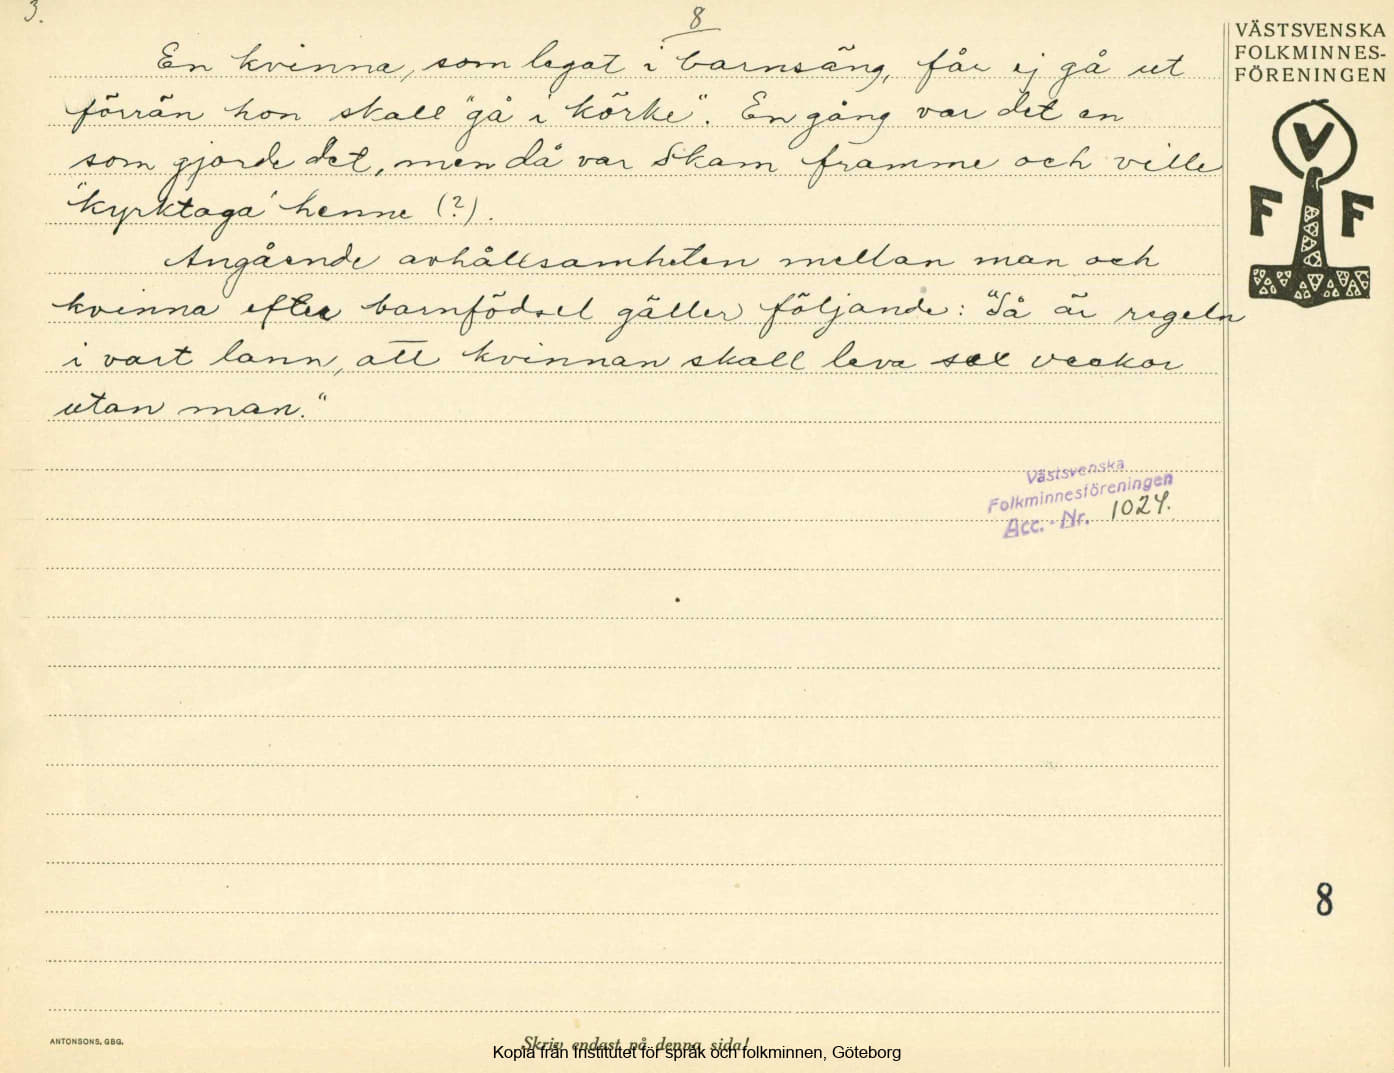 3.
8
VÄSTSVENSKA
FOLKMINNES-
FÖRENINGEN
V
F F
En kvinna, som legat i barnsäng, får ej gå ut
förrän hon skall "gå i körke". En gång var det en
som gjorde det, men då var Skam framme och ville
"kyrktaga" henne (?).
Angående avhållsamheten mellan man och
kvinna efter barnfödsel gäller följande: "Så är regeln
i vart lann, att kvinnan skall leva sex veckor
utan man."
Västsvenska
Folkminnesföreningen
Acc. - Nr. 1024.
8
ANTONSONS, GBG.
Skriv endast på denna sida!
Kopia från Institutet för språk och folkminnen, Göteborg